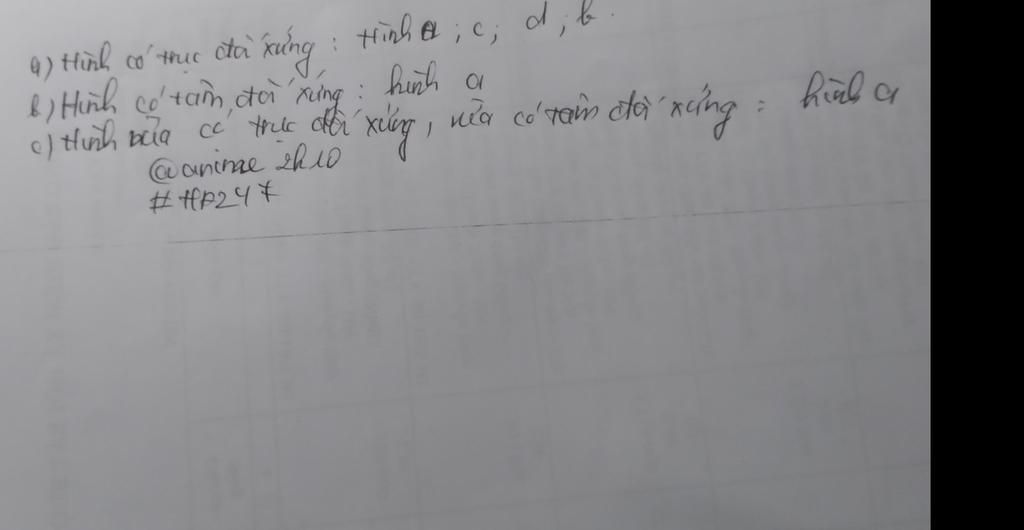 a) Hình có trục đối xứng : Hình a ; c ; d ; b .
b) Hình có tâm đối xứng : hình a
c) Hình vừa có trục đối xứng , vừa có tâm đối xứng : hình a
@anime 2k10
# HP247